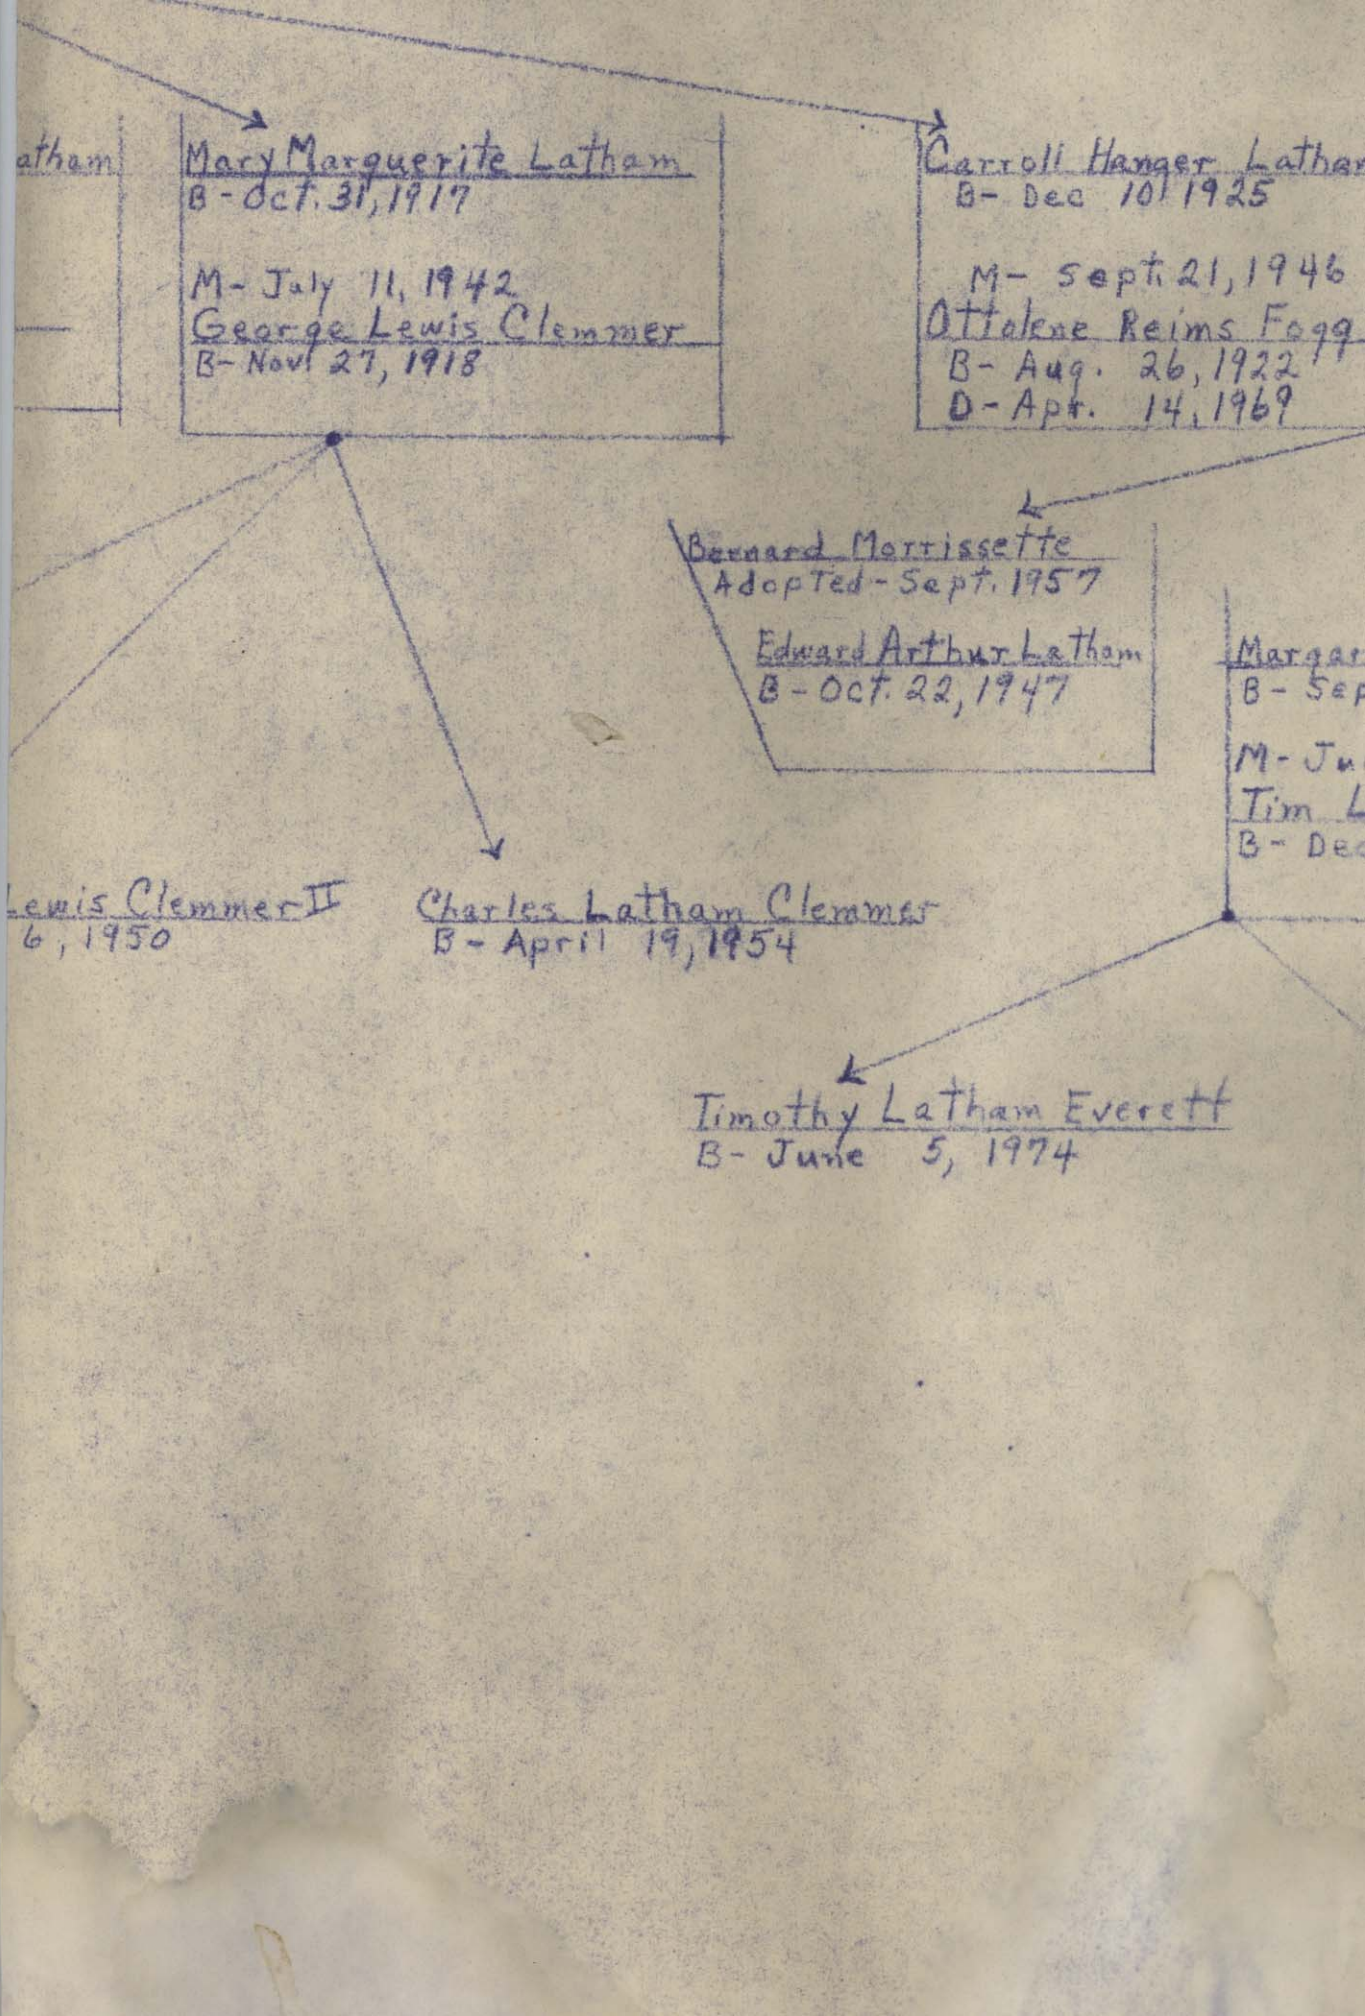 atham
Mary Marguerite Latham
B - Oct. 31, 1917
M - July 11, 1942
George Lewis Clemmer
B - Nov. 27, 1918
Carroll Hanger Latham
B - Dec 10, 1925
M - Sept. 21, 1946
Ottolene Reims Fogg
B - Aug. 26, 1922
D - Apr. 14, 1969
Bernard Morrissette
Adopted - Sept. 1957
Edward Arthur Latham
B - Oct. 22, 1947
Margar
B - Sep
M - Ju
Tim L
B - Dec
Lewis Clemmer II
6, 1950
Charles Latham Clemmer
B - April 19, 1954
Timothy Latham Everett
B - June 5, 1974